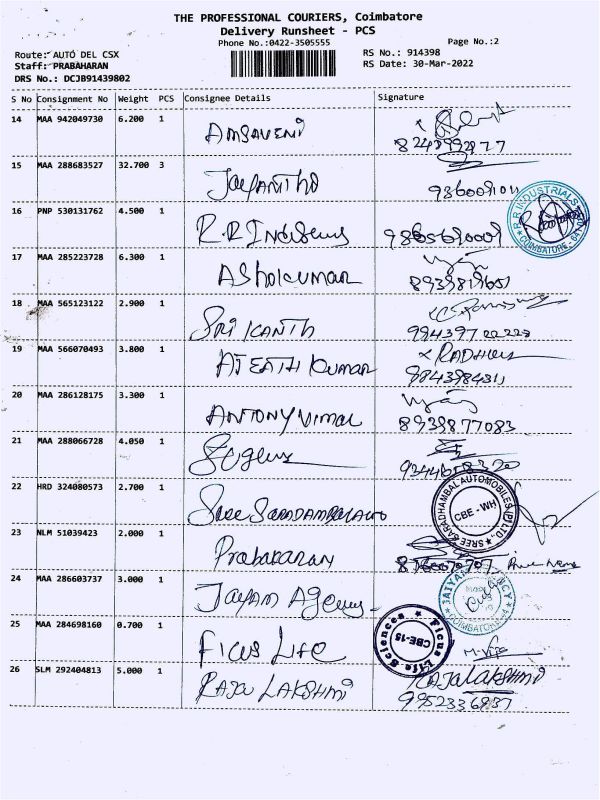 THE PROFESSIONAL COURIERS, Coimbatore
Delivery Runsheet - PCS
Phone No.:0422-3505555
Page No.:2
Route: AUTO DEL CSX
RS No.: 914398
Staff: PRABAHARAN
RS Date: 30-Mar-2022
DRS No.: DCJB91439802
S No Consignment No Weight PCS Consignee Details Signature
14 MAA 942049730 6.200 1 AMSAVENI
15 MAA 288683527 32.700 3 Jayantho
16 PNP 530131762 4.500 1 R.R Industries
R.R INDUSTRIALS
COIMBATORE
17 MAA 285223728 6.300 1 AShokumar
18 MAA 565123122 2.900 1 SRI KANTH
19 MAA 566070493 3.800 1 AJEATH KUMAR RADHU
9843984311
20 MAA 286128175 3.300 1 ANTONY Vimal
8939877083
21 MAA 288066728 4.050 1
22 HRD 324080573 2.700 1 Sree
SREE SARADHAMBAL AUTOMOBILES (P) LTD.
CBE - WH
23 NLM 51039423 2.000 1 Prabakaran
24 MAA 286603737 3.000 1 Jayam Agency
COIMBATORE
25 MAA 284698160 0.700 1 FICUS LIFE
Ficus Life Sciences
CBE-15
26 SLM 292404813 5.000 1 RAJA LAKSHMI RAJALAKSHMI
9952336837